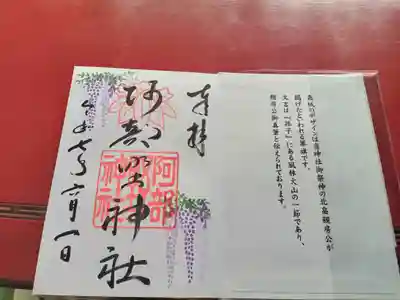 奉拝
阿部野神社
令和七年六月一日
阿部
神社
表紙のデザインは当神社御祭神の北畠親房公が
掲げたといわれる軍旗です。
文言は『孫子』にある風林火山の一節であり、
親房公御真筆と伝えられております。